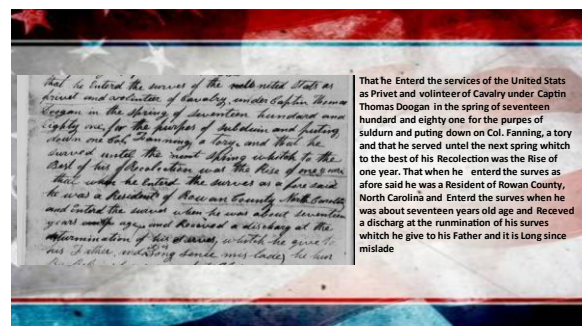 that he Enterd the surves of the nited Stats as
privet and volintier of Cavalry, under Captin Thomas
Doogan in the spring of seventeen hundard and
Eighty one, for the purpes of subduin and puting
down one Col. Fanning, a tory, and that he
surved until the next spring whitch to the
Best of his Recolection was the Rise of one year
that when he Enterd the surves as a fore said
he was a Resident of Rowan County North Carolina
and enterd the surves when he was about seventeen
years age and Receved a discharg at the
termination of his surves, whitch he give to
his Father, and Long sence mis-lade, he
That he Enterd the services of the United Stats
as Privet and volinteer of Cavalry under Captin
Thomas Doogan in the spring of seventeen
hundard and eighty one for the purpes of
suldurn and puting down on Col. Fanning, a tory
and that he served untel the next spring whitch
to the best of his Recolection was the Rise of
one year. That when he enterd the surves as
afore said he was a Resident of Rowan County,
North Carolina and Enterd the surves when he
was about seventeen years old age and Receved
a discharg at the runmination of his surves
whitch he give to his Father and it is Long since
mislade